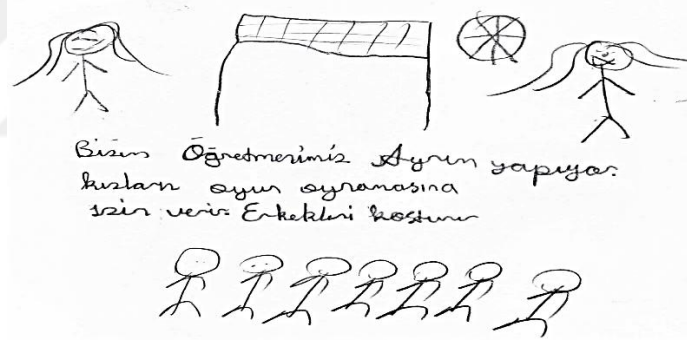 Bizim Öğretmenimiz Ayrım yapıyor.
kızların oyun oynamasına
izin verir. Erkekleri koşturur